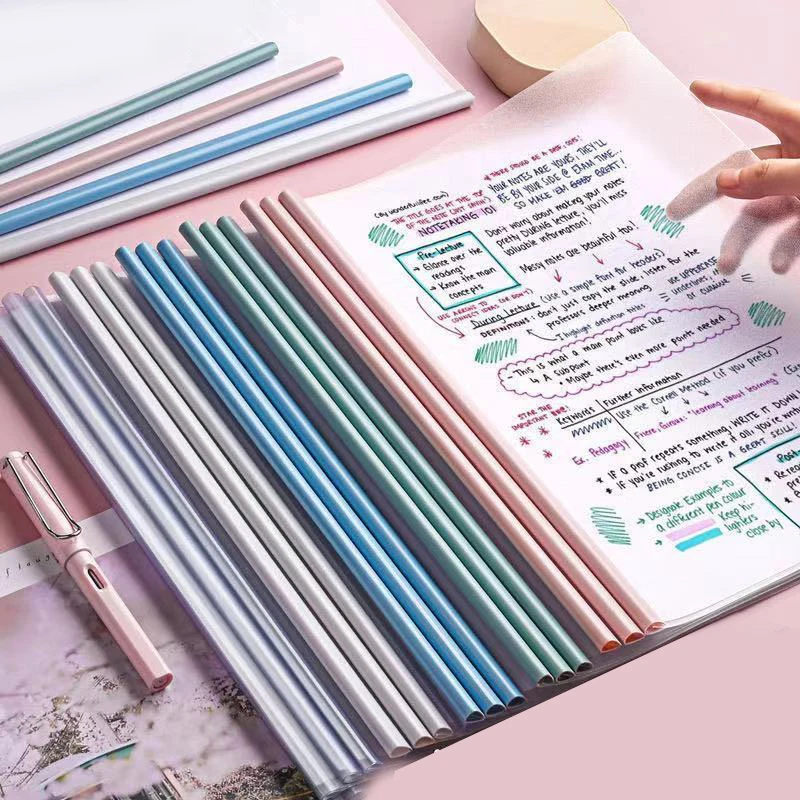 (by wonderful life .com)
THE TITLE GOES AT THE TOP
OF THE NOTE (JUST SAYING)
NOTETAKING 101
* THERE SHOULD BE A DATE, OOPS!
YOUR NOTES ARE YOURS, THEY'LL
BE BY YOUR SIDE @ EXAM TIME..
SO MAKE 'EM GOOD GREAT!
Pre-Lecture
→ Glance over the
readings
→ Know the main
concepts
Don't worry about making your notes
pretty DURING lecture, you'll miss
valuable information!
Messy notes are beautiful too!
USE ARROWS TO
CONNECT IDEAS (OR DON'T)
During Lecture (use a simple font for headers)
DEFINITIONS: don't just copy the slide, listen for the
professor's deeper meaning
highlight definition titles
USE UPPERCASE
underlines,
or cursive
- This is what a main point looks like
↳ A subpoint
• Maybe there's even more points needed
STAR THE
IMPORTANT
Keywords
Further Information
Use the Cornell Method (if you prefer)
Ex. Pedagogy
"learning about learning"
* IF a prof repeats something, WRITE IT DOWN
* if you're rushing to write it all, you're
BEING CONCISE IS A GREAT SKILL!
→ Designate Examples to
a different pen colour
→ Keep hi-
lighters
close by
Post-
• Re-read